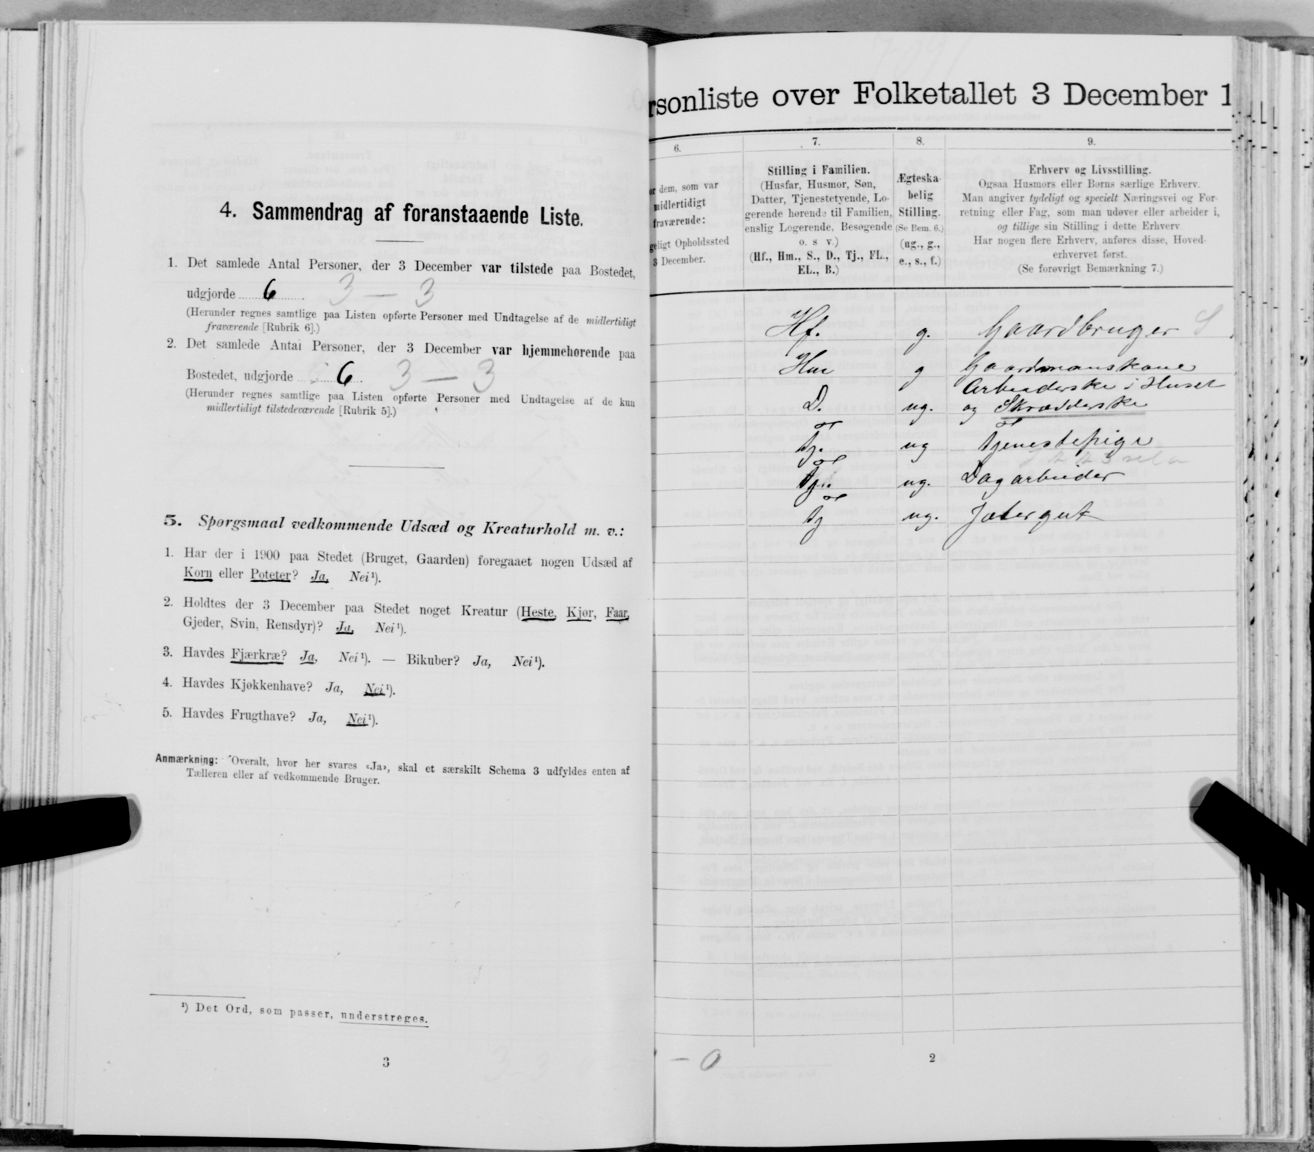 4. Sammendrag af foranstaaende Liste.
1. Det samlede Antal Personer, der 3 December var tilstede paa Bostedet,
udgjorde 6 3 — 3
(Herunder regnes samtlige paa Listen opførte Personer med Undtagelse af de midlertidigt
fraværende [Rubrik 6].)
2. Det samlede Antal Personer, der 3 December var hjemmehørende paa
Bostedet, udgjorde 6 3 — 3
(Herunder regnes samtlige paa Listen opførte Personer med Undtagelse af de kun
midlertidigt tilstedeværende [Rubrik 5].)
5. Spørgsmaal vedkommende Udsæd og Kreaturhold m. v.:
1. Har der i 1900 paa Stedet (Bruget, Gaarden) foregaaet nogen Udsæd af
Korn eller Poteter? Ja, Nei¹).
2. Holdtes der 3 December paa Stedet noget Kreatur (Heste, Kjør, Faar,
Gjeder, Svin, Rensdyr)? Ja, Nei¹).
3. Havdes Fjærkræ? Ja, Nei¹). — Bikuber? Ja, Nei¹).
4. Havdes Kjøkkenhave? Ja, Nei¹).
5. Havdes Frugthave? Ja, Nei¹).
Anmærkning: Overalt, hvor her svares «Ja», skal et særskilt Schema 3 udfyldes enten af
Tælleren eller af vedkommende Bruger.
¹) Det Ord, som passer, understreges.
3
rsonliste over Folketallet 3 December 1
6.
dem, som var
midlertidigt
fraværende:
geligt Opholdssted
3 December.
7.
Stilling i Familien.
(Husfar, Husmor, Søn,
Datter, Tjenestetyende, Lo-
gerende hørende til Familien,
enslig Logerende, Besøgende
o. s v.)
(Hf., Hm., S., D., Tj., FL.,
EL., B.)
8.
Ægteska-
belig
Stilling.
(Se Bem. 6.)
(ug., g.,
e., s., f.)
9.
Erhverv og Livsstilling.
Ogsaa Husmors eller Børns særlige Erhverv.
Man angiver tydeligt og specielt Næringsvei og For-
retning eller Fag, som man udøver eller arbeider i,
og tillige sin Stilling i dette Erhverv
Har nogen flere Erhverv, anføres disse, Hoved-
erhvervet først.
(Se forøvrigt Bemærkning 7.)
Hf. g. Gaardbruger S
Hm g Gaardmanskone
Arbeiderske i Huset
D. ug. og Skrædderske
tj. ug Tjenestepige
tj. ug. Dagarbeider
tj ug. Jætergut
— 0
2